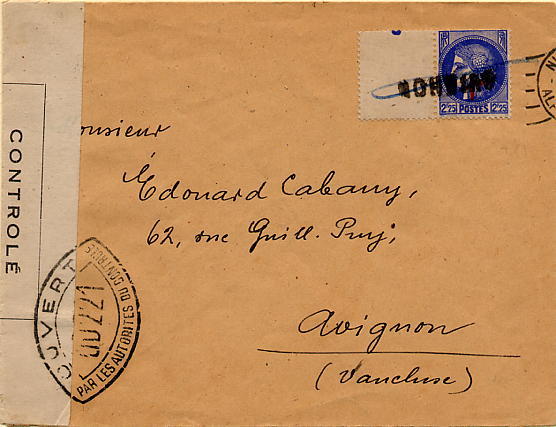 CONTROLÉ
OUVERT
PAR LES AUTORITÉS DU CONTROLE
00221
RF
2F25 POSTES 2F25
onsieur
Édouard Cabany,
62, rue Guill. Puy,
Avignon
(Vaucluse)